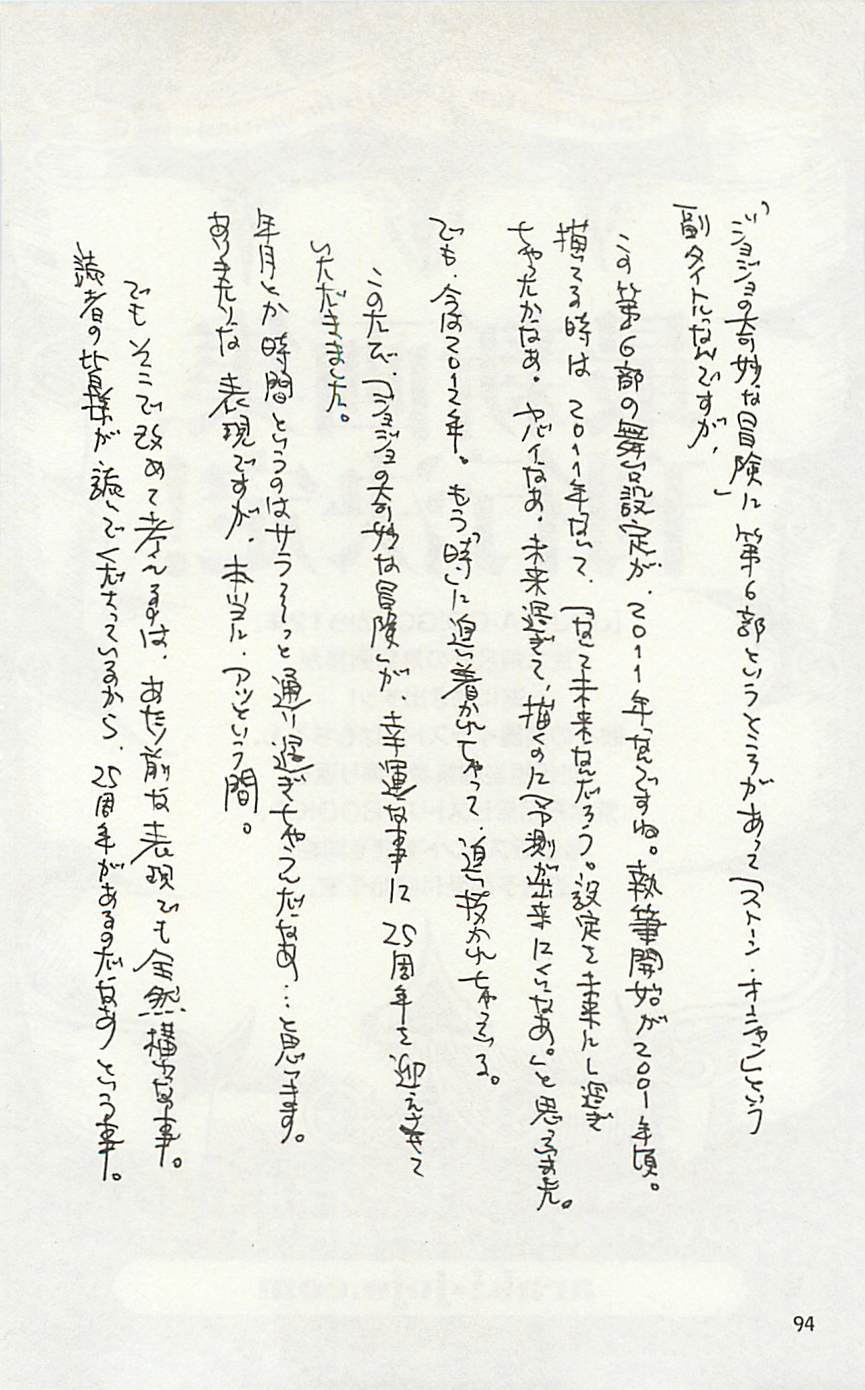 『ジョジョの奇妙な冒険』に第6部というところがあって「ストーン・オーシャン」という
副タイトルなんですが、
この第6部の舞台設定が、2011年なんですね。執筆開始が2001年頃。
描いてる時は2011年なんて、「なんて未来なんだろう。設定を未来にし過ぎ
ちゃったかなあ。ヤバイなあ。未来過ぎて、描くのに予測が出来にくいなあ。」と思ってました。
でも、今は2012年。もう「時」に追い着かれちゃって、追い抜かれちゃってる。
このたび、「ジョジョの奇妙な冒険」が、幸運な事に25周年を迎えさせて
いただきました。
年月とか時間というのはサラ〜っと通り過ぎちゃうんだなあ…と思います。
ありきたりな表現ですが、本当に、アッという間。
でもそこで改めて考えるのは、あたり前な表現でも全然構わない事。
読者の皆様が、読んでくださっているから、25周年があるのだなあという事。
94